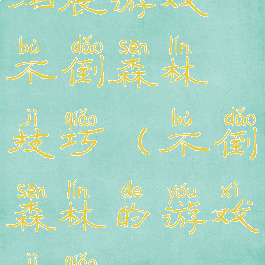 拓展游戏
bù dǎo sēn lín
不倒森林
jì qiǎo bù dǎo
技巧(不倒
sēn lín de yóu xì
森林的游戏
jì qiǎo